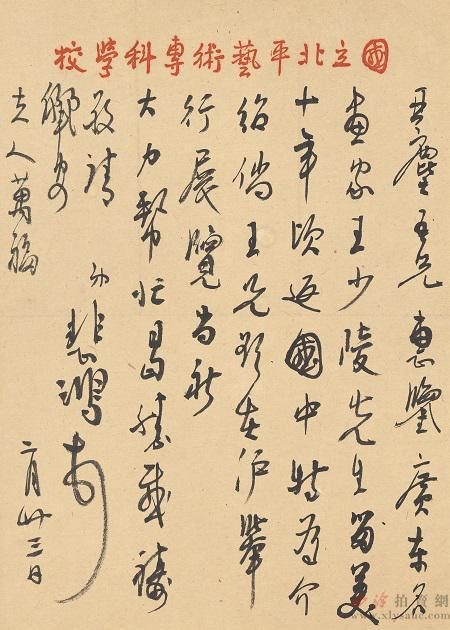 國立北平藝術專科學校
亞塵吾兄惠鑒廣東名
畫家王少陵先生留美
十年頃返國中特為介
紹倘王兄欲在滬舉
行展覽尚祈
大力幫忙曷勝感禱
敬請
儷安
夫人萬福
弟悲鴻頓
二月廿三日
西泠拍賣網
www.xlysauc.com